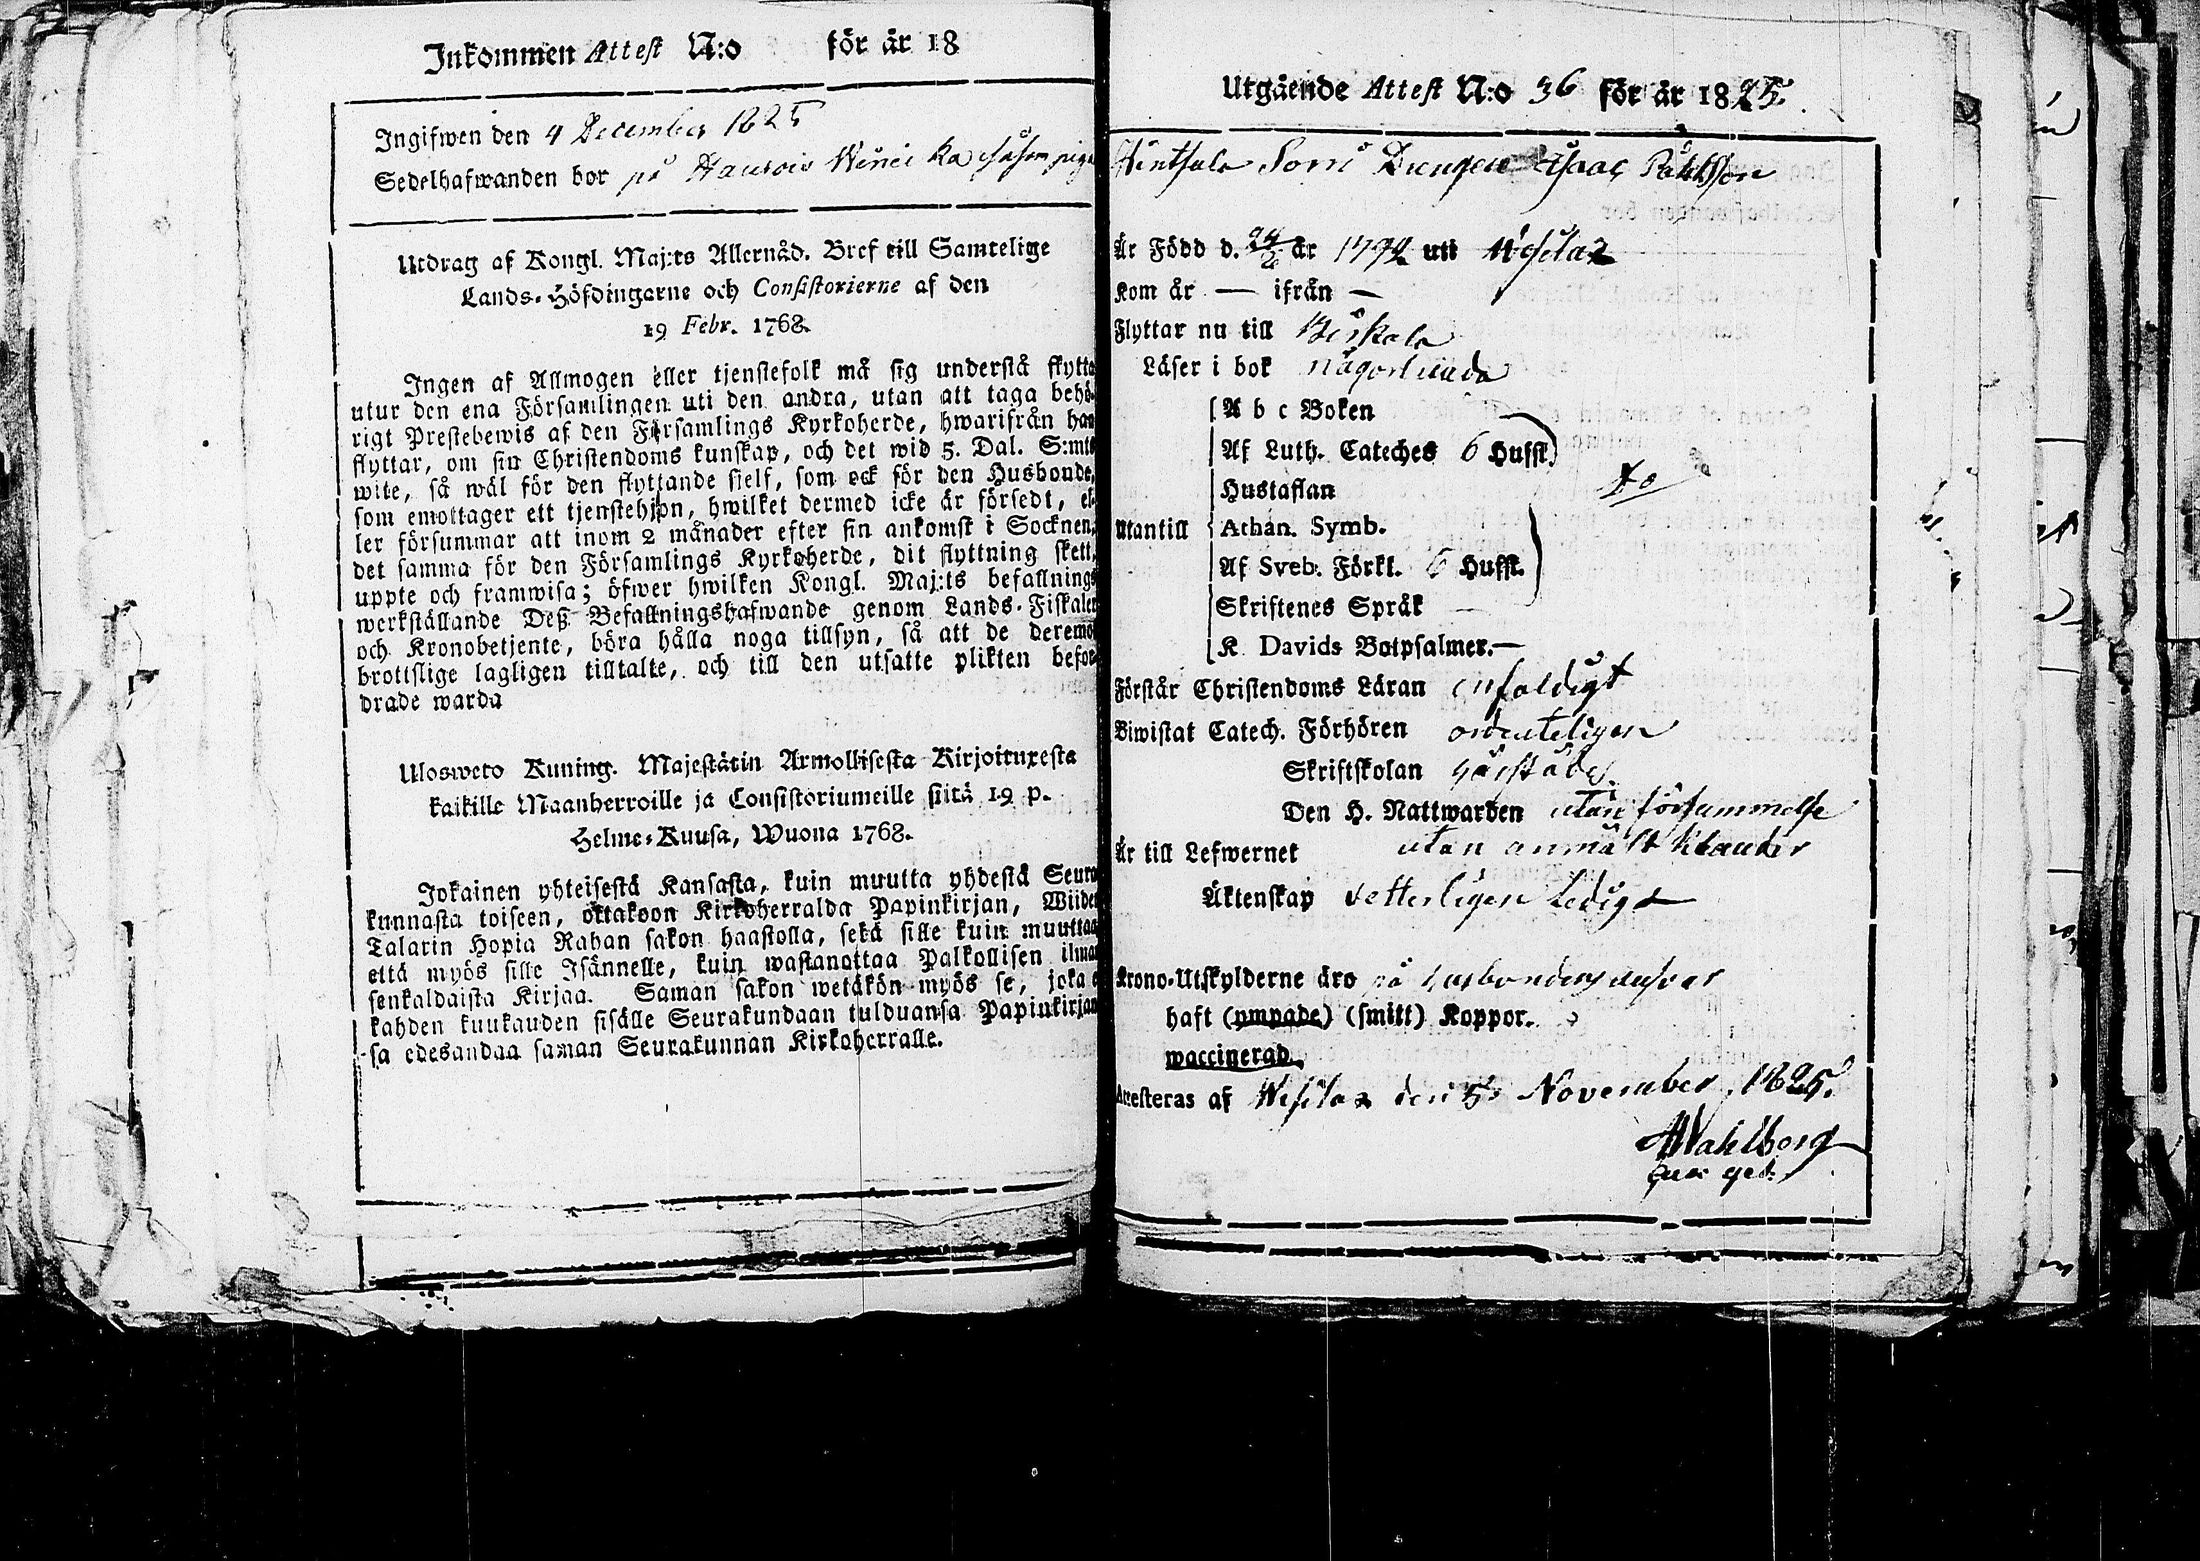 Inkommen Attest N:o för år 18
Ingifwen den 4 December 1825
Sedelhafwanden bor på
Utdrag af Kongl. Maj:ts Allernåd. Bref till Samtelige
Lands-Höfdingarne och Consistorierne af den
19 Febr. 1768.
Ingen af Allmogen eller tjenstefolk må sig understå flytta
utur den ena Församlingen uti den andra, utan att taga behö-
rigt Prestebewis af den Församlings Kyrkoherde, hwarifrån han
flyttar, om sin Christendoms kunskap, och det wid 5. Dal. S:mts
wite, så wäl för den flyttande sielf, som ock för den Husbonde,
som emottager ett tjenstehjon, hwilket dermed icke är försedt, el-
ler försummar att inom 2 månader efter sin ankomst i Socknen,
det samma för den Församlings Kyrkoherde, dit flyttning skett,
uppte och framwisa; öfwer hwilken Kongl. Maj:ts befallnings
werkställande Deß Befallningshafwande genom Lands-Fiskaler
och Kronobetjente, böra hålla noga tillsyn, så att de deremot
brottslige lagligen tilltalte, och till den utsatte plikten befor-
drade warda
Ulosweto Kuning. Majestätin Armollisesta Kirjoituxesta
kaikille Maanherroille ja Consistoriumeille siitä 19 p.
Helme-Kuusa, Wuona 1768.
Jokainen yhteisestä Kansasta, kuin muutta yhdestä Seura
kunnasta toiseen, ottakoon Kirkoherralda Papinkirjan, Wiiden
Talarin Hopia Rahan sakon haastolla, sekä sille kuin muuttaa
että myös sille Isännelle, kuin wastanottaa Palkollisen ilman
senkaldaista Kirjaa. Saman sakon wetäkön myös se, joka ei
kahden kuukauden sisälle Seurakundaan tulduansa Papinkirjan
sa edesandaa saman Seurakunnan Kirkoherralle.
Utgående Attest N:o 36 för år 1825.
Drengen Isaac
Är Född d. 24/2 år 1792 uti Wesilax
Kom år — ifrån —
Flyttar nu till Birkala
Läser i bok någorlunda
A b c Boken
Af Luth. Cateches 6 Hufst.
Hustaflan
Utantill Athan. Symb.
Af Sveb. Förkl. 6 Hufst.
Skriftenes Språk
K. Davids Botpsalmer. —
Förstår Christendoms Läran enfaldigt
Biwistat Catech. Förhören ordenteligen
Skriftskolan
Den H. Nattwarden utan försummelse
Är till Lefwernet utan anmält klander
Äktenskap vetterligen Ledigt
Krono-Utskylderne äro på husbondens ansvar
haft (ympade) (smitt) Koppor.
waccinerad.
Attesteras af Wesilax den 5 November 1825.
Wahlberg